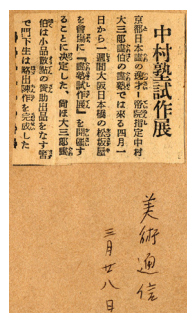 中村塾試作展
京都日本畫の逸才＝帝院指定中村
大三郎畫伯の畫塾では來る四月一
日から一週間大阪日本橋の松坂屋
を會場に『畫塾試作展』を開催す
ることに決定した、尙ほ大三郎畫
伯は小品數點の賛助出品をなす筈
で門下生は略出陳作を完成した
美術通信
三月廿八日